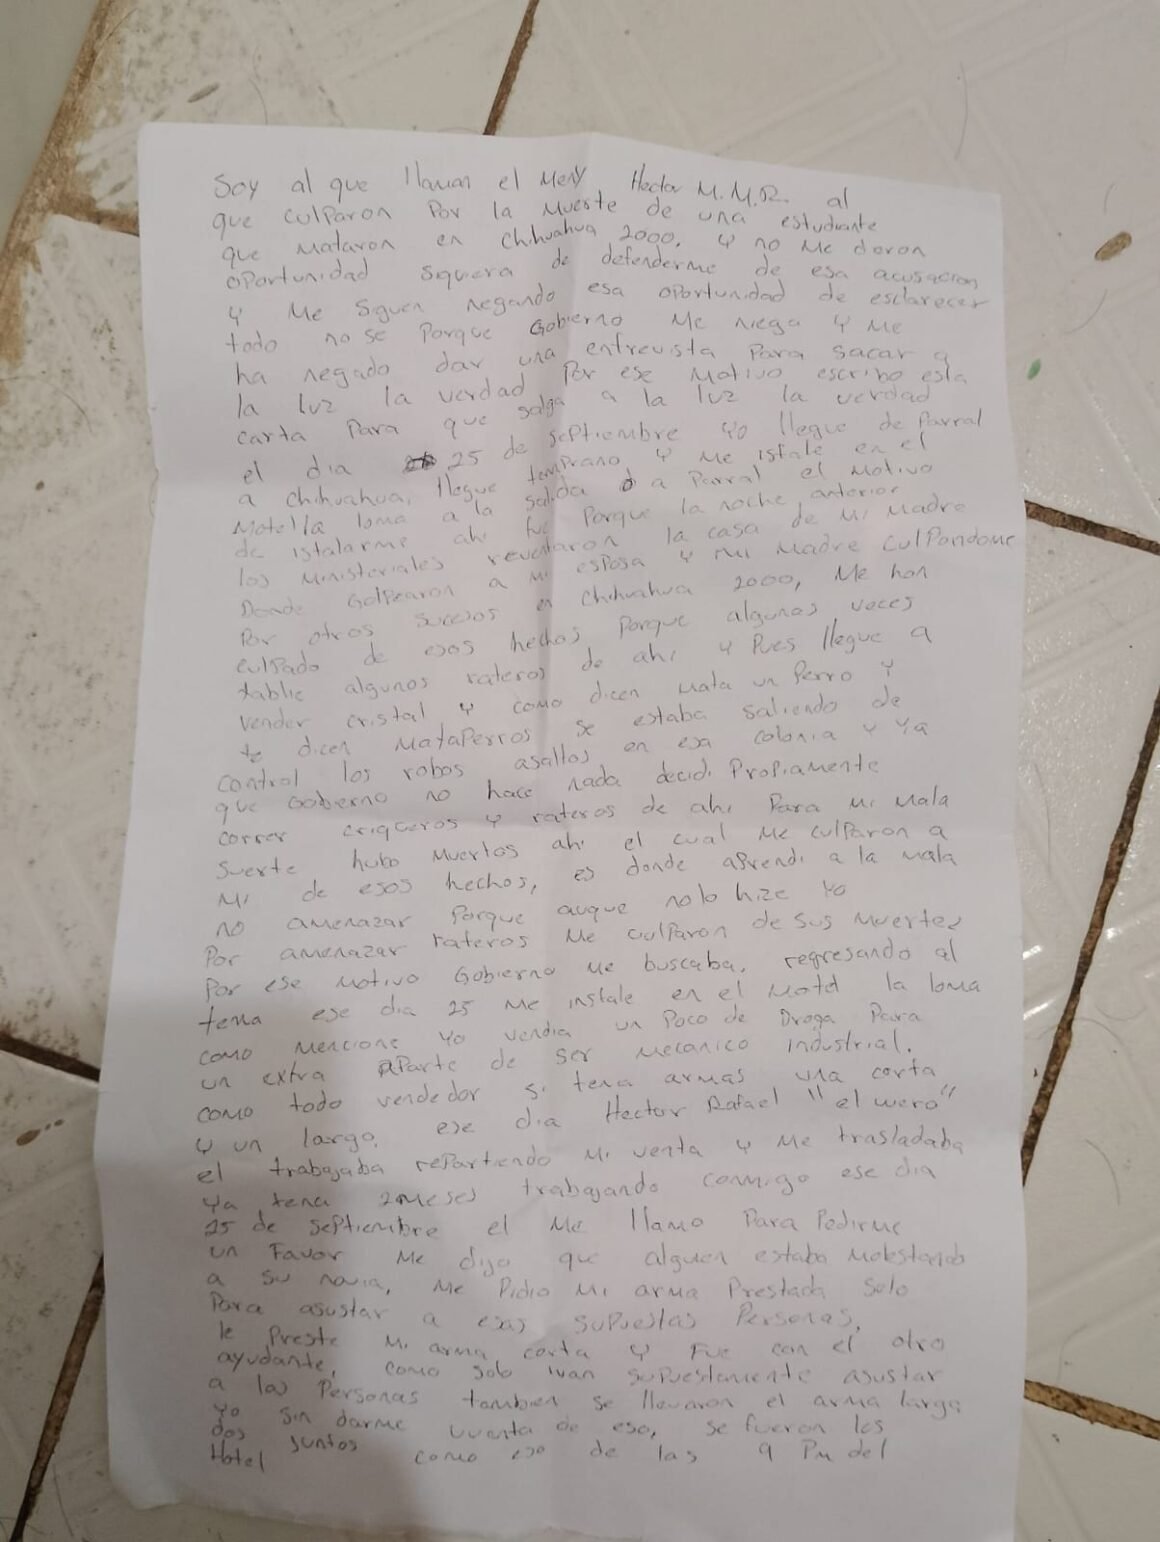 Soy al que llaman el Meny Hector M.M.R. al
que culParon Por la Muerte de una estudiante
que Mataron en Chihuahua 2000, y no Me deron
oPortunidad siquiera de defenderme de esa acusacion
y Me siguen negando esa oPortunidad de esclarecer
todo no se Porque Gobierno Me niega y Me
ha negado dar una entrevista Para sacar a
la luz la verdad Por ese Motivo escribo esta
carta Para que salga a la luz la verdad
el dia 25 de sePtiembre yo llegue de Parral
a chihuahua, llegue temPrano y Me istale en el
Motel la loma a la salida a Parral el Motivo
de istalarme ahi fue Porque la noche anterior
los Ministeriales reventaron la casa de Mi Madre
Donde GolPearon a Mi esPosa y Mi Madre CulPandome
Por otros sucesos en Chihuahua 2000, Me han
culPado de esos hechos Porque algunas veces
tablie algunos rateros de ahi y Pues llegue a
vender cristal y como dicen Mata un Perro y
te dicen MataPerros se estaba saliendo de
control los robos asaltos en esa colonia y ya
que Gobierno no hace nada decidi ProPiamente
correr criqueros y rateros de ahi Para Mi Mala
suerte hubo Muertos ahi el cual Me culParon a
Mi de esos hechos, es donde aPrendi a la Mala
no amenazar Porque auque no lo hize yo
Por amenazar rateros Me culParon de sus Muertes
Por ese Motivo Gobierno Me buscaba, regresando al
tema ese dia 25 Me instale en el Motel la loma
como Mencione yo vendia un Poco de Droga Para
un extra aParte de ser Mecanico industrial.
como todo vendedor si tenia armas una corta
y un largo, ese dia Hector Rafael "el wero"
el trabajaba rePartiendo Mi venta y Me trasladaba
ya tenia 2 Meses trabajando conmigo ese dia
25 de sePtiembre el Me llamo Para Pedirme
un Favor Me dijo que alguien estaba Molestando
a su novia, Me Pidio Mi arma Prestada solo
Para asustar a esas suPuestas Personas,
le Preste Mi arma corta y Fue con el otro
ayudante, como solo ivan suPuestamente asustar
a las Personas tambien se llevaron el arma larga
yo sin darme cuenta de eso, se fueron los
dos juntos como eso de las 9 Pm del
Hotel